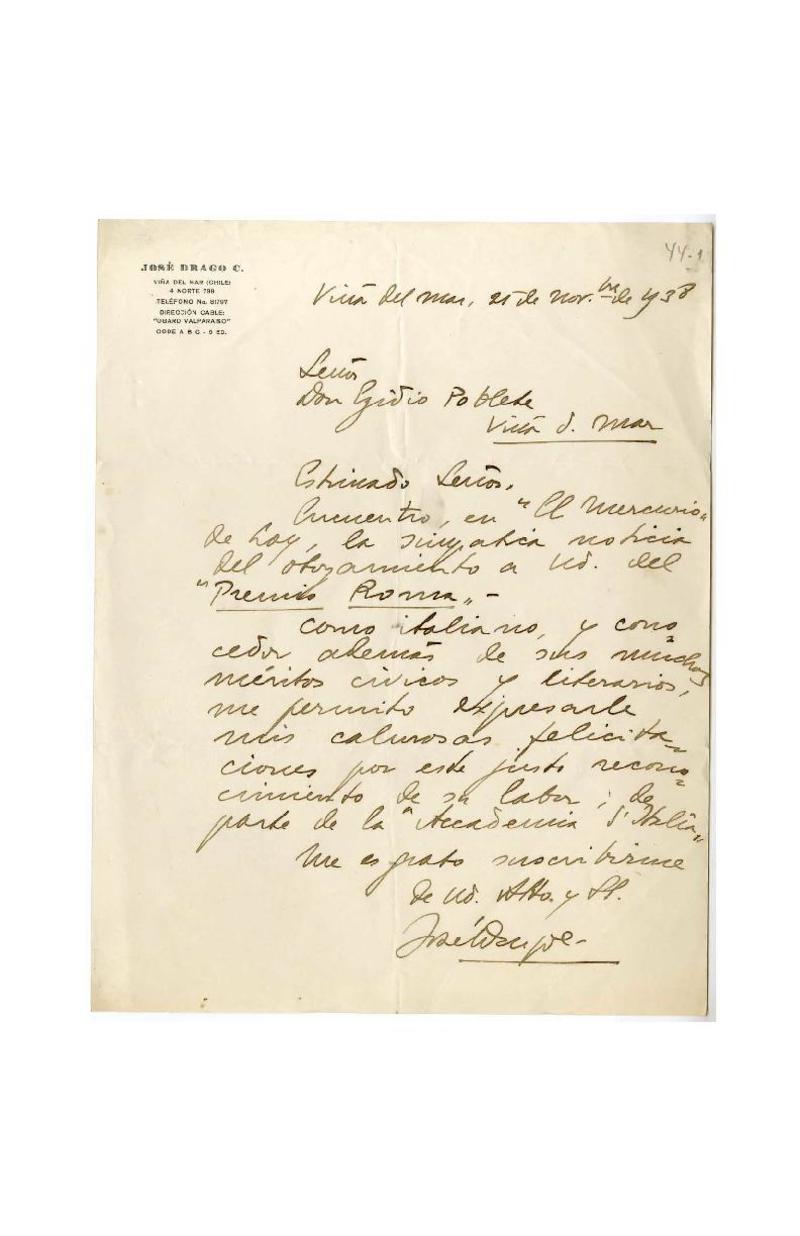 44-1
JOSÉ DRAGO C.
VIÑA DEL MAR (CHILE)
4 NORTE 799
TELÉFONO No. 81797
DIRECCIÓN CABLE:
"OGARD VALPARAISO"
CODE A B C - 5 ED.
Viña del Mar, de Nov.bre de 1938
Señor
Don Egidio Poblete
Viña d. Mar
Estimado Señor,
Encuentro, en "El Mercurio"
de hoy, la simpática noticia
del otorgamiento a Ud. del
"Premio Roma" -
Como italiano, y cono=
cedor además de sus muchos
méritos cívicos y literarios,
me permito expresarle
mis calurosas felicita=
ciones por este justo recono=
cimiento de su labor, de
parte de la "Accademia d'Italia"
Me es grato suscribirme
de Ud. Atto. y SS.
José Drago C.